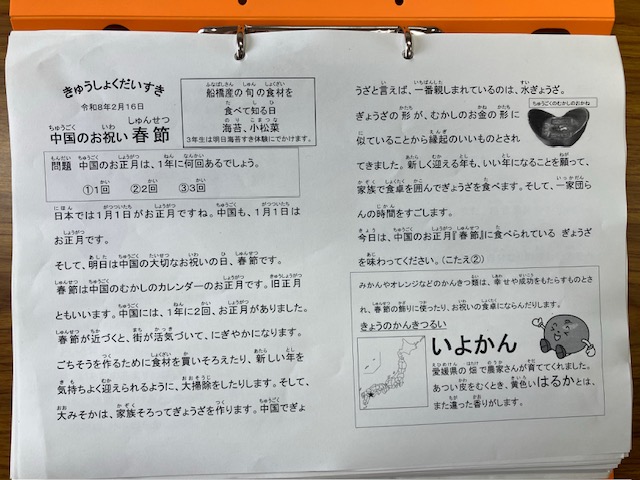 きゅうしょくだいすき
令和8年2月16日
中国のお祝い 春節
船橋産の旬の食材を
食べて知る日
海苔、小松菜
3年生は明日海苔すき体験にでかけます。
問題 中国のお正月は、1年に何回あるでしょう。
①1回 ②2回 ③3回
日本では1月1日がお正月ですね。中国も、1月1日は
お正月です。
そして、明日は中国の大切なお祝いの日、春節です。
春節は中国のむかしのカレンダーのお正月です。旧正月
ともいいます。中国には、1年に2回、お正月がありました。
春節が近づくと、街が活気づいて、にぎやかになります。
ごちそうを作るために食材を買いそろえたり、新しい年を
気持ちよく迎えられるように、大掃除をしたりします。そして、
大みそかは、家族そろってぎょうざを作ります。中国でぎょ
うざと言えば、一番親しまれているのは、水ぎょうざ。
ぎょうざの形が、むかしのお金の形に
似ていることから縁起のいいものとされ
てきました。新しく迎える年も、いい年になることを願って、
家族で食卓を囲んでぎょうざを食べます。そして、一家団ら
んの時間をすごします。
今日は、中国のお正月『春節』に食べられている ぎょうざ
を味わってください。(こたえ②)
ちゅうごくのむかしのおかね
みかんやオレンジなどのかんきつ類は、幸せや成功をもたらすものとさ
れ、春節の飾りに使ったり、お祝いの食卓にならんだりします。
きょうのかんきつるい
いよかん
愛媛県の畑で農家さんが育ててくれました。
あつい皮をむくとき、黄色いはるかとは、
また違った香りがします。